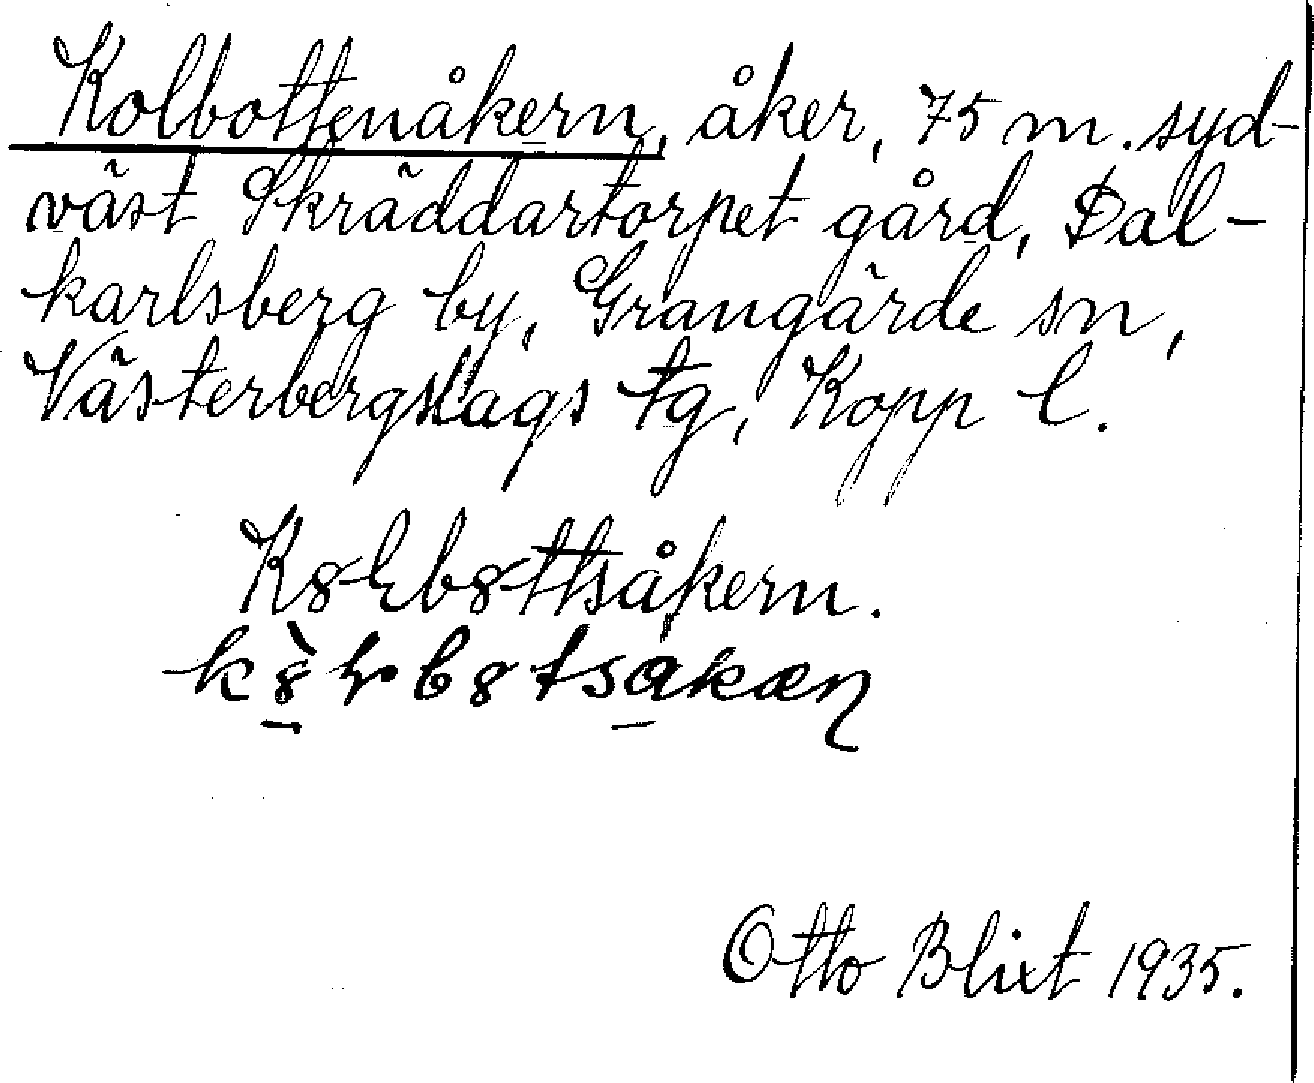 Kolbottenåkern, åker, 75 m. syd-
väst Skräddartorpet gård, Dal-
karlsberg by, Grangärde sn,
Västerbergslags tg, Kopp l.
Otto Blixt 1935.